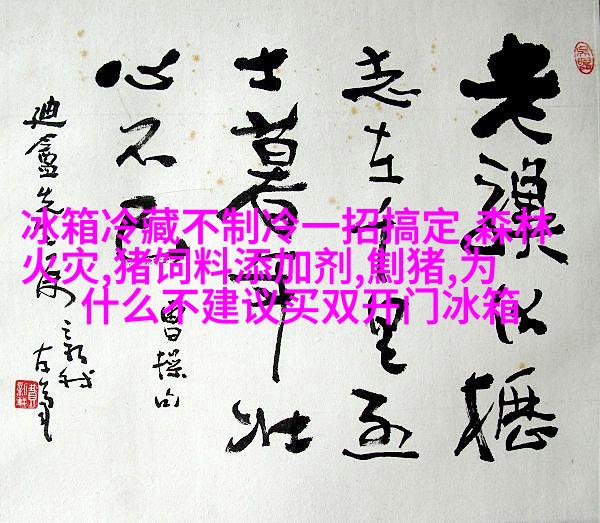 冰箱冷藏不制冷一招搞定,森林
火灾,猪饲料添加剂,劁猪,为
什么不建议买双开门冰箱
老驥伏櫪
志在千里烈
士暮年壮
心不已
曹操句